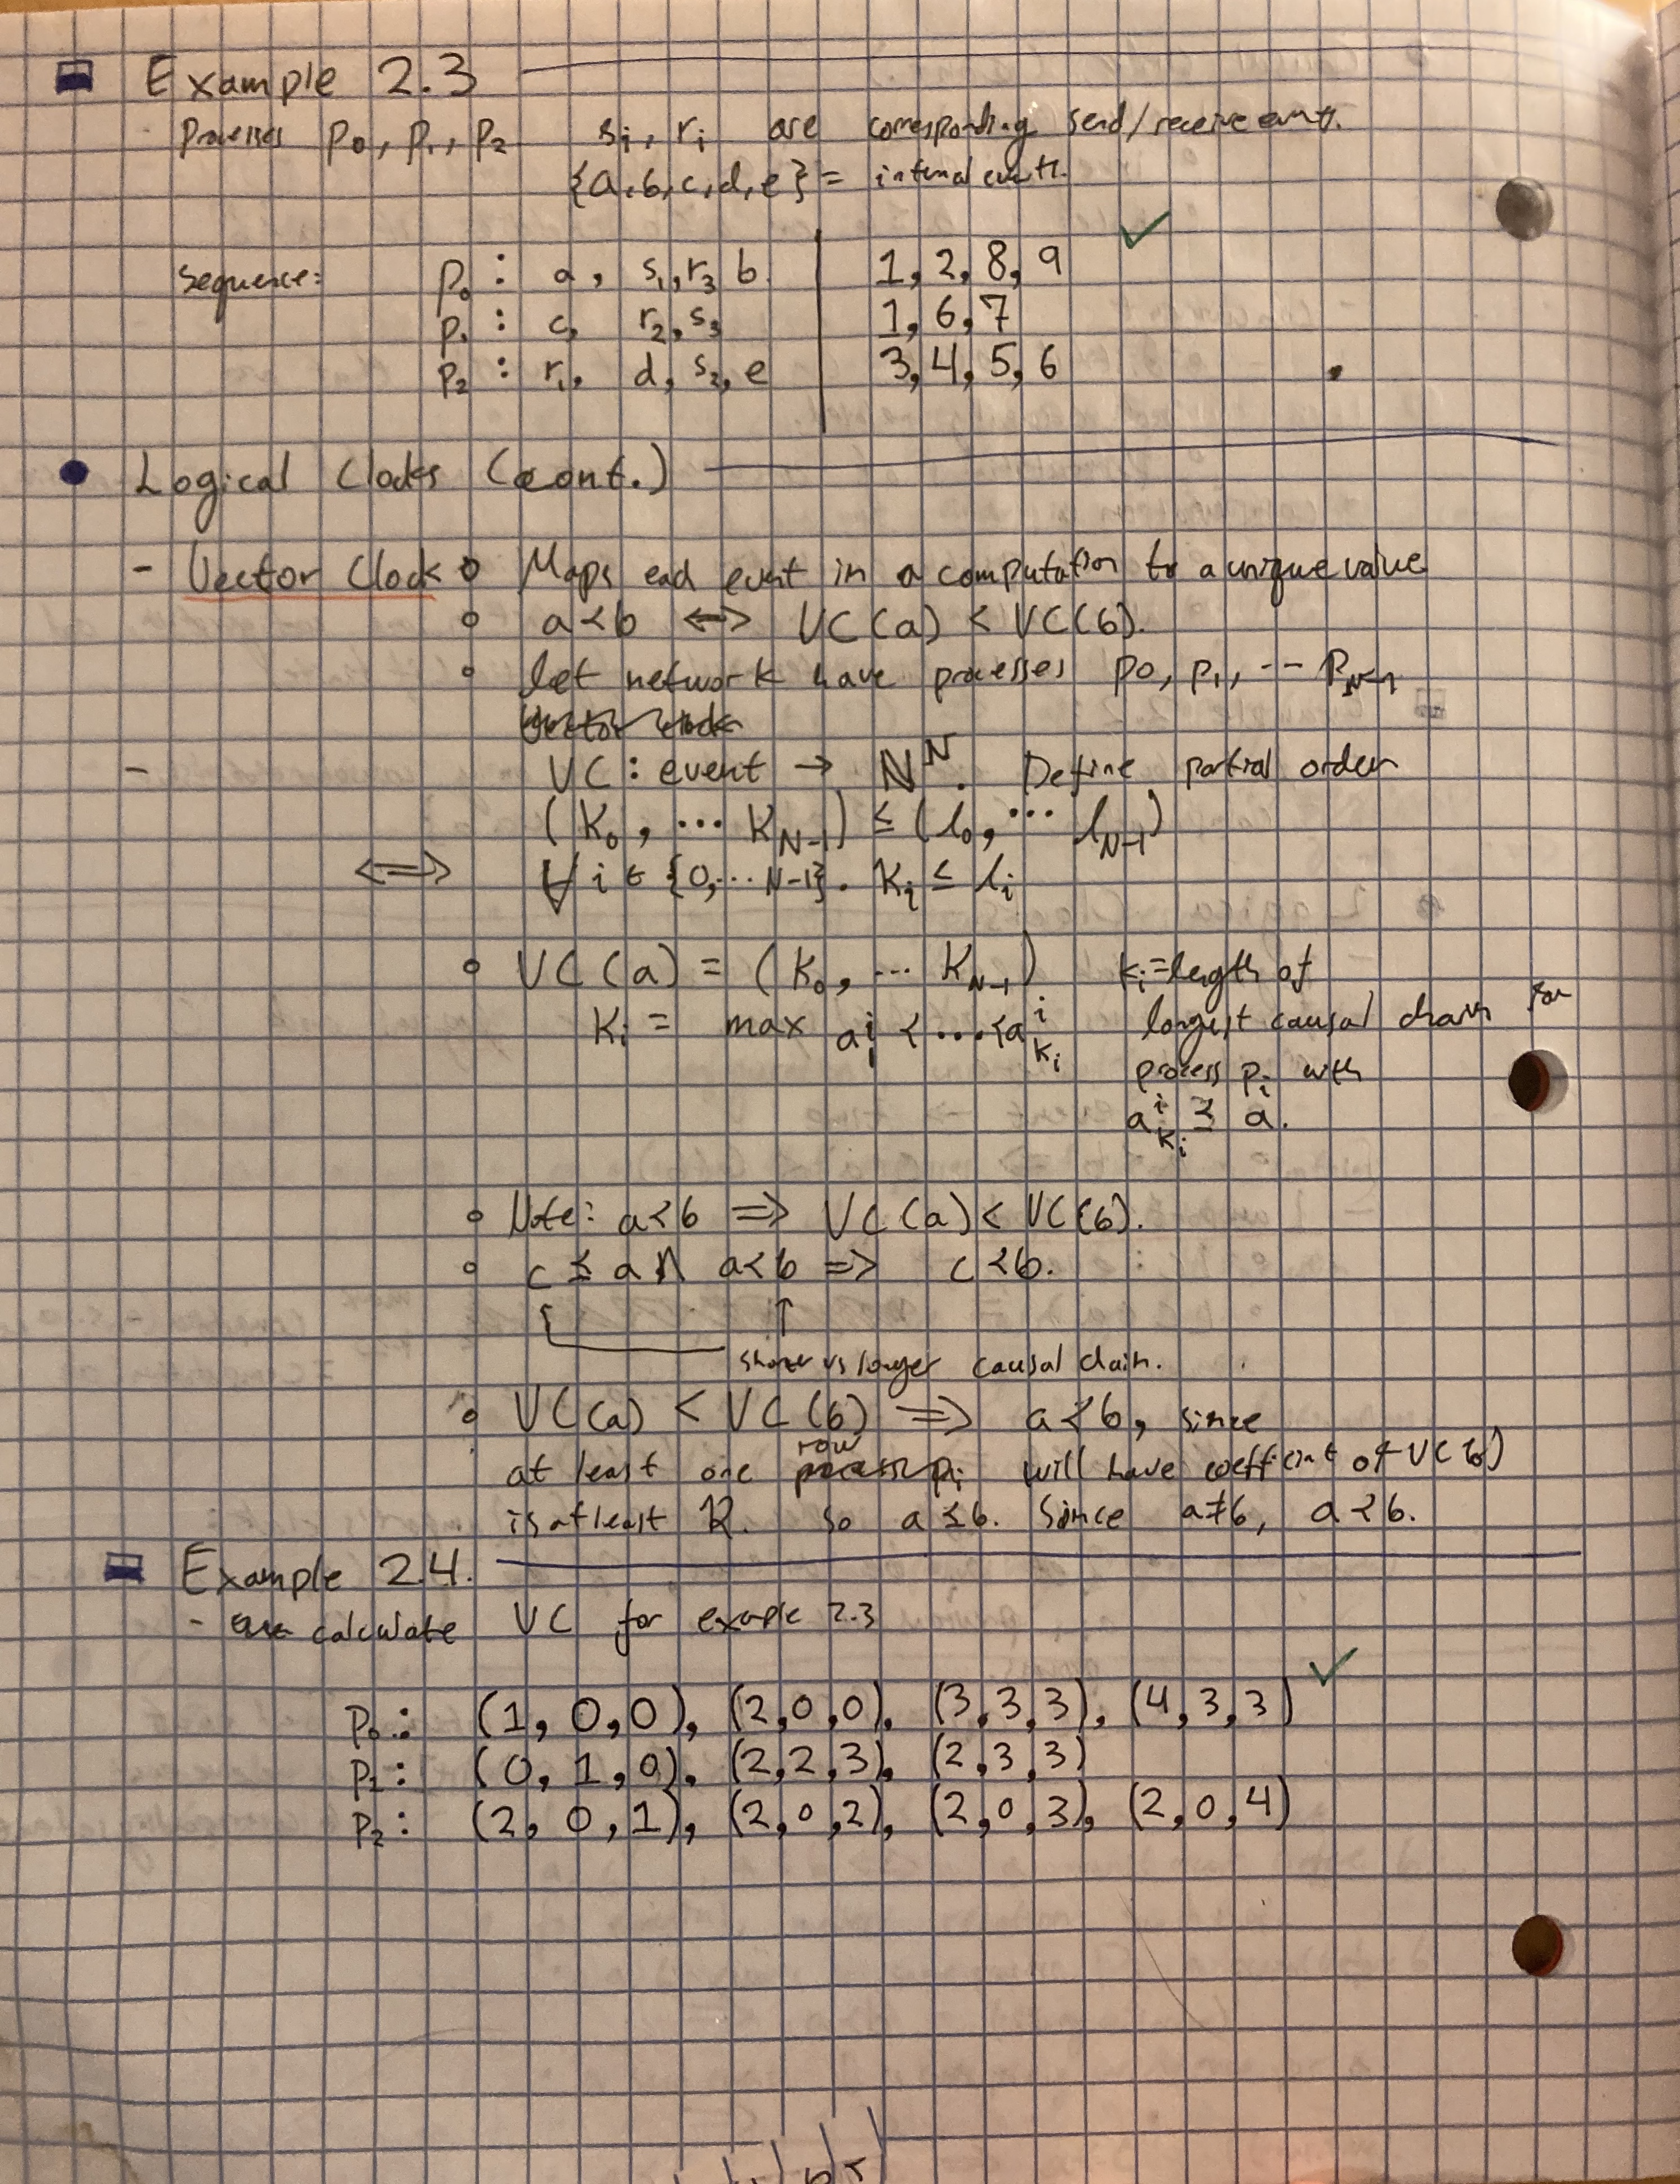 Example 2.3
- processes p₀, p₁, p₂ sᵢ, rᵢ are corresponding send/receive evnts.
{a,b,c,d,e} = internal events.
sequence: p₀ : a, s₁, r₃ b. 1, 2, 8, 9
p₁ : c, r₂, s₃ 1, 6, 7
p₂ : r₁, d, s₂, e 3, 4, 5, 6
Logical Clocks (cont.)
- Vector Clock o Maps each event in a computation to a unique value
o a ≺ b <=> VC(a) < VC(b).
o let network have processes p0, p₁, -- P_N-1
Vector clock
- VC : event → ℕ^N. Define partial order
(K₀, ... K_N-1) ≤ (l₀, ... l_N-1)
<=> ∀ i ∈ {0,... N-1}. Kᵢ ≤ lᵢ
o VC(a) = (K₀, ... K_N-1) Kᵢ = length of
Kᵢ = max a₁^i ≺ .... ≺ a_kᵢ^i longest causal chain for
process pᵢ with
a_kᵢ^i ⪯ a.
o Note: a ≺ b => VC(a) < VC(b).
o c ⪯ a ∧ a ≺ b => c ≺ b.
shorter vs longer causal chain.
o VC(a) < VC(b) => a ≺ b, since
row
at least one process pᵢ will have coefficient of VC(b)
is at least K. So a ⪯ b. Since a ≠ b, a ≺ b.
Example 2.4.
- calculate VC for example 2.3
p₀: (1, 0, 0), (2, 0, 0), (3, 3, 3), (4, 3, 3)
p₁: (0, 1, 0), (2, 2, 3), (2, 3, 3)
p₂: (2, 0, 1), (2, 0, 2), (2, 0, 3), (2, 0, 4)